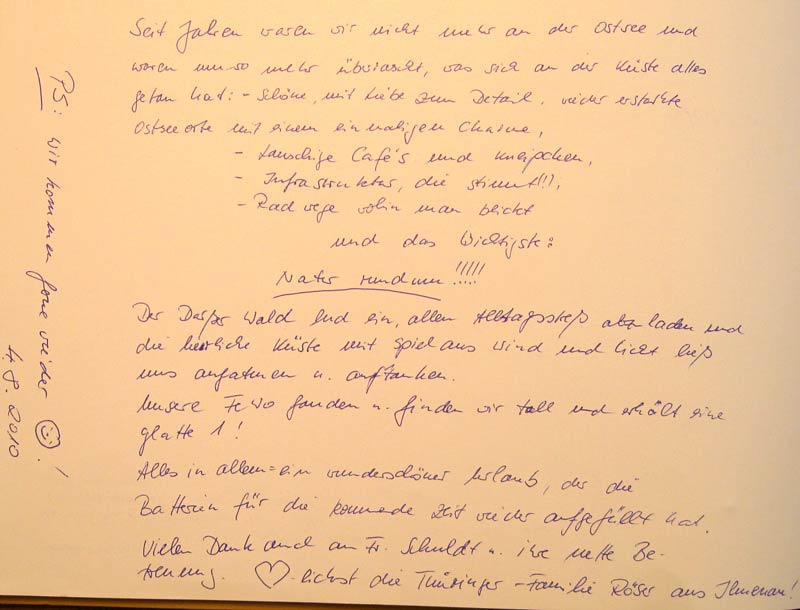 Seit Jahren waren wir nicht mehr an der Ostsee und
waren um so mehr überrascht, was sich an der Küste alles
getan hat: - Schöne, mit Liebe zum Detail, wieder erstarkte
Ostseeorte mit einem einmaligen Charme,
- Lauschige Café's und Kneipchen,
- Infrastruktur, die stimmt!!!,
- Radwege wohin man blickt
und das Wichtigste:
Natur rundum!!!!!
Der Darßer Wald lud ein, allen Alltagsstreß abzuladen und
die herrliche Küste mit Spiel aus Wind und Licht ließ
uns aufatmen u. auftanken.
Unsere FeWo fanden u. finden wir toll und erhält eine
glatte 1!
Alles in allem = ein wunderschöner Urlaub, der die
Batterien für die kommende Zeit wieder aufgefüllt hat.
Vielen Dank auch an Fr. Schuldt u. ihre nette Be-
treuung. ♡-lichst die Thüringer - Familie Röser aus Ilmenau!
PS: Wir kommen gerne wieder ☺!
4.8.2010